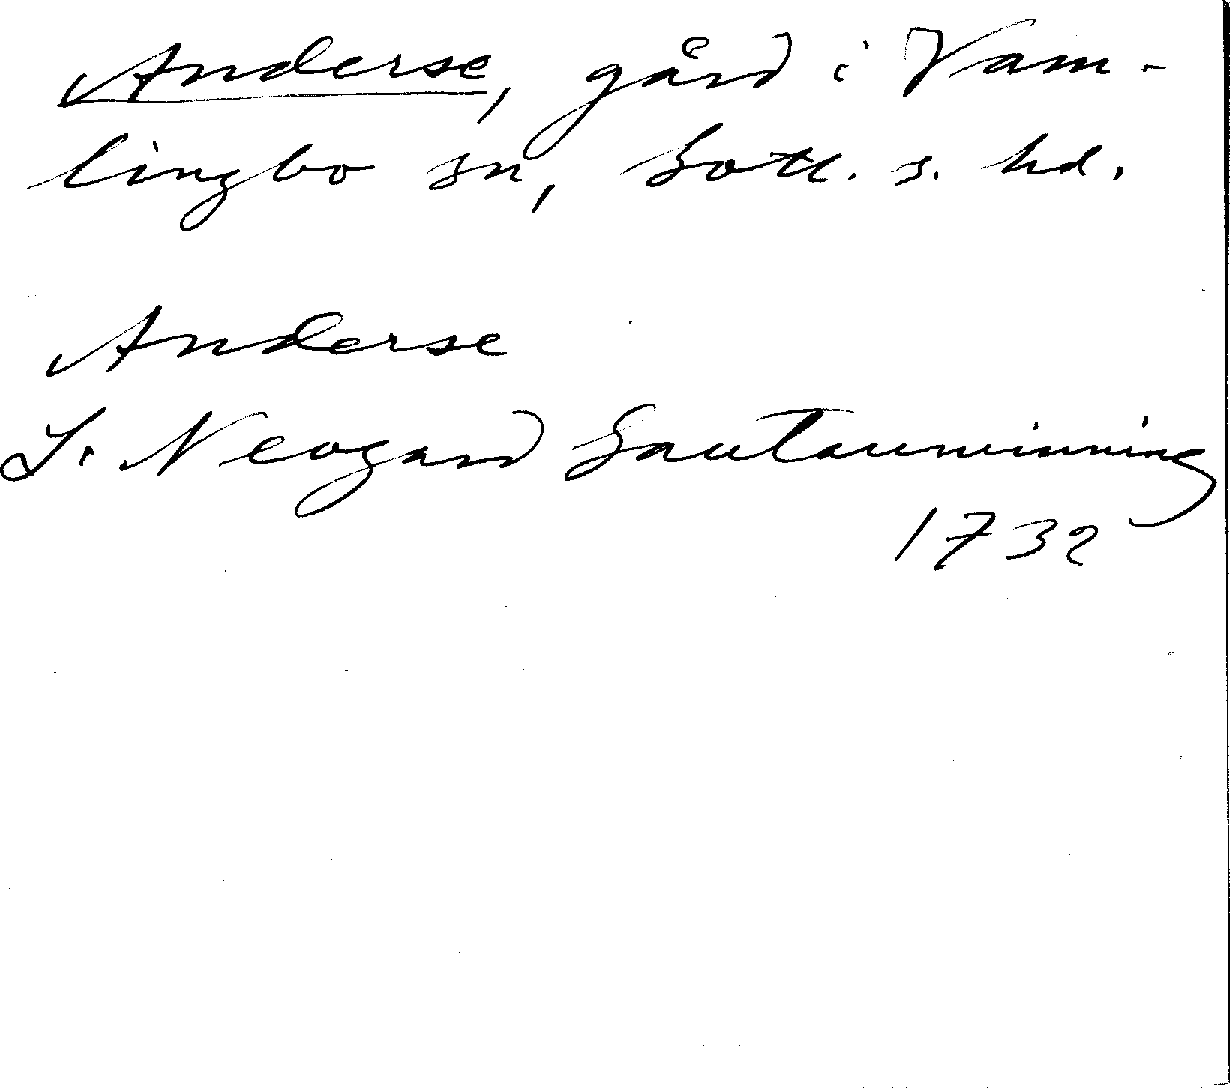 Anderse, gård i Vam-
lingbo sn, Gotl. s. hd.
Anderse
L. Neogard Gautauminning
1732